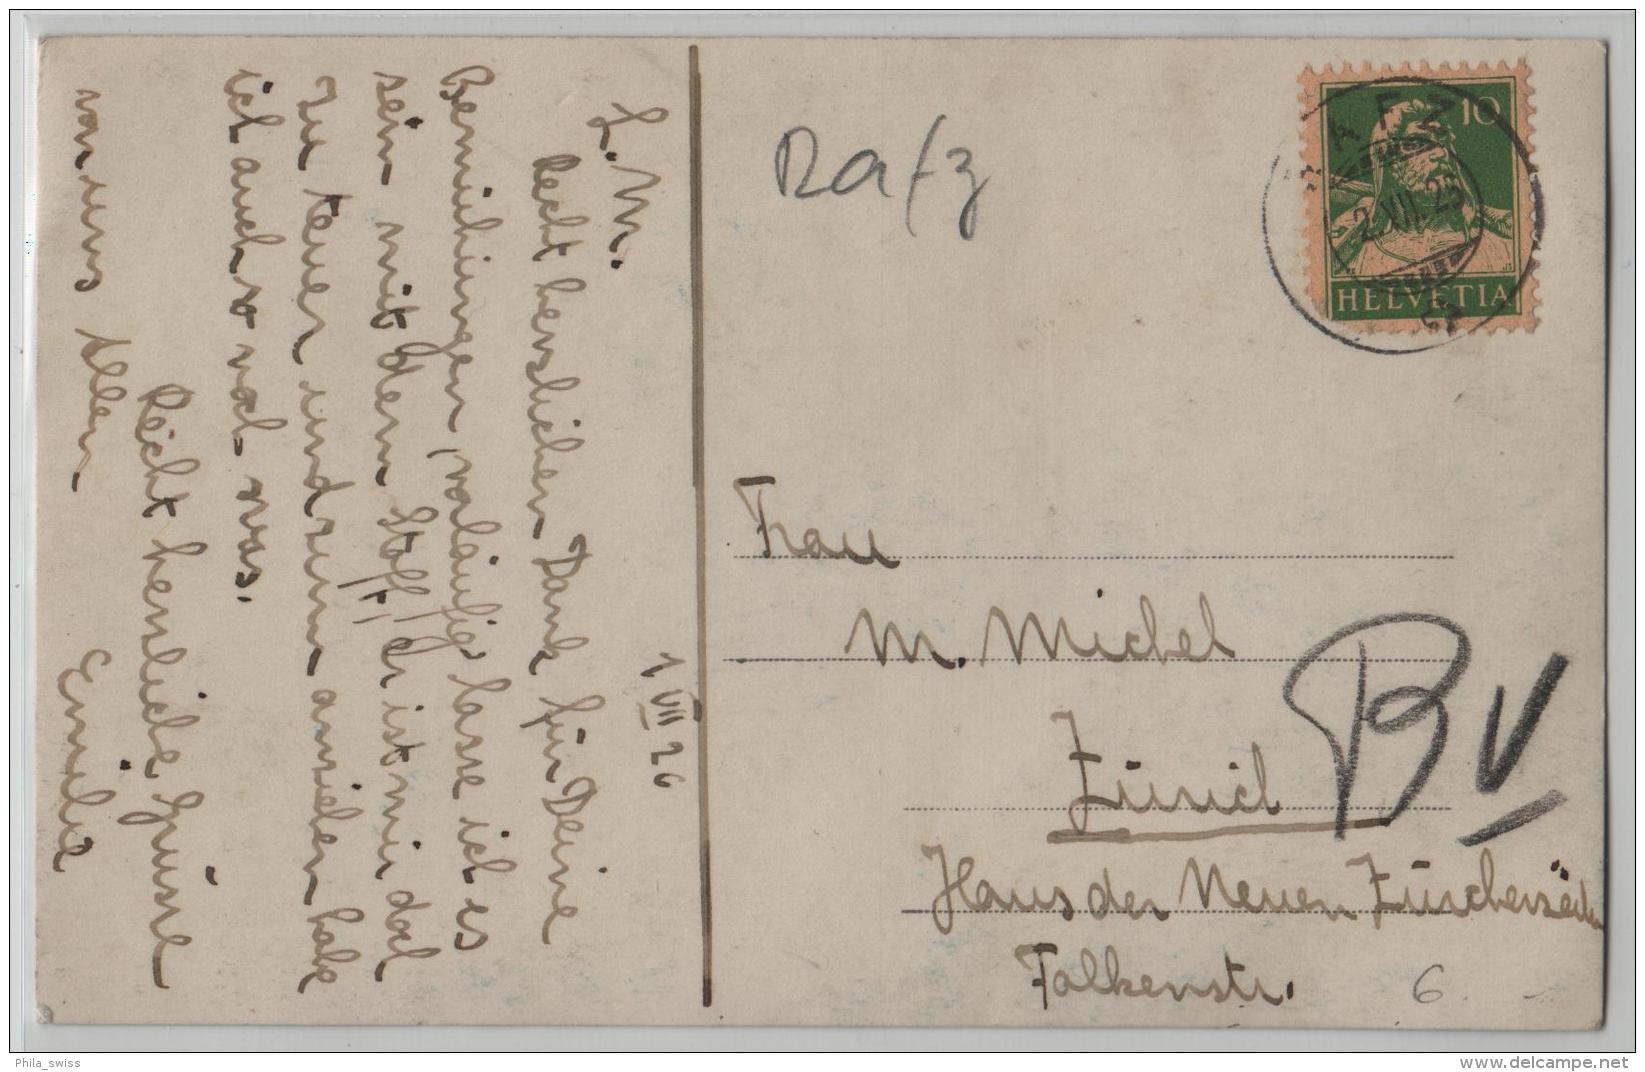 1 VII 26
L. M.
Recht herzlichen Dank für Deine
Bemühungen, vorläufig lasse ich es
sein mit dem Stoff, er ist mir doch
zu teuer und zum anziehen habe
ich auch noch was.
Recht herzliche Grüsse
von uns Allen
Emilie
Rafz
10
HELVETIA
RAFZ
2.XII.25
Frau
M. Michel
Zürich
Haus der Neuen Zürcherzeitun
Falkenstr.
BV
6.
Phila_swiss
www.delcampe.net